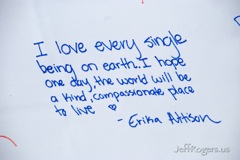 I love every single
being on earth. I hope
one day, the world will be
a kind, compassionate place
to live ♡
- Erika Attison
JeffRogers.us